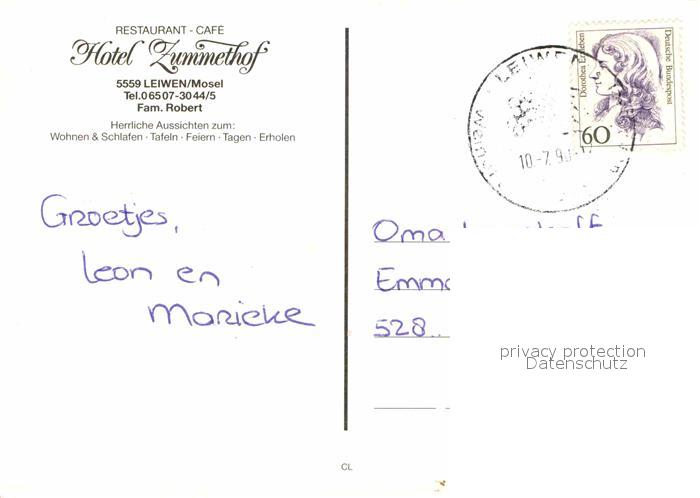 RESTAURANT - CAFÉ
Hotel Zummethof
5559 LEIWEN/Mosel
Tel. 06507-3044/5
Fam. Robert
Herrliche Aussichten zum:
Wohnen & Schlafen · Tafeln · Feiern · Tagen · Erholen
LEIWEN
10-7.9
Dorothea Erxleben
Deutsche Bundespost
60
Groetjes,
Leon en
Marieke
Oma
Emma
528..
privacy protection
Datenschutz
CL